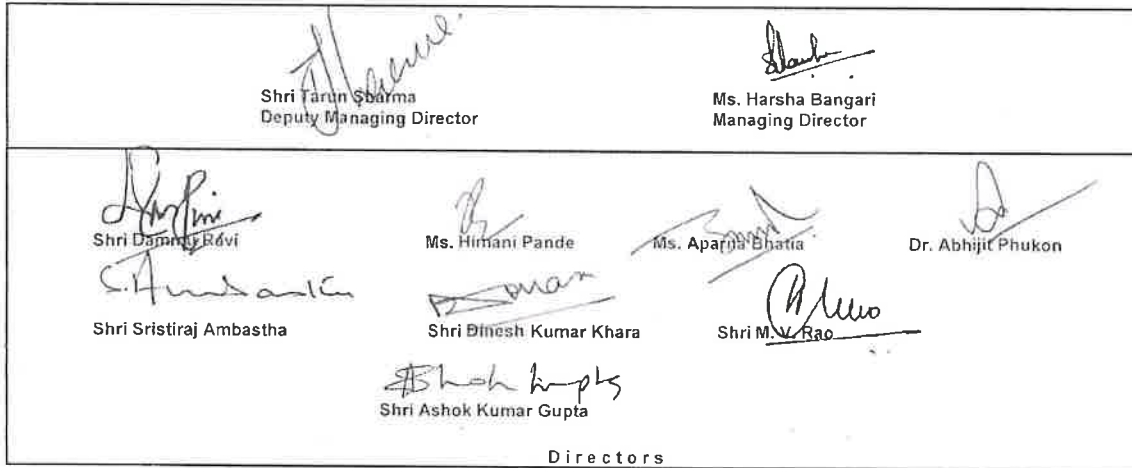 Shri Tarun Sharma
Deputy Managing Director
Ms. Harsha Bangari
Managing Director
Shri Dammu Ravi
Ms. Himani Pande
Ms. Aparna Bhatia
Dr. Abhijit Phukon
Shri Sristiraj Ambastha
Shri Dinesh Kumar Khara
Shri M. V. Rao
Shri Ashok Kumar Gupta
Directors